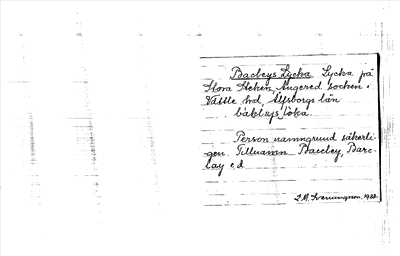 Bacleys Lycka Lycka på
Stora Steken, Angered socken i
Vättle hd, Älfsborgs län
bäklıys löka.
Person namngrund säkerli-
gen. Tillnamn Baccley, Barc-
lay e d
S. M. Svenungsson. 1922.